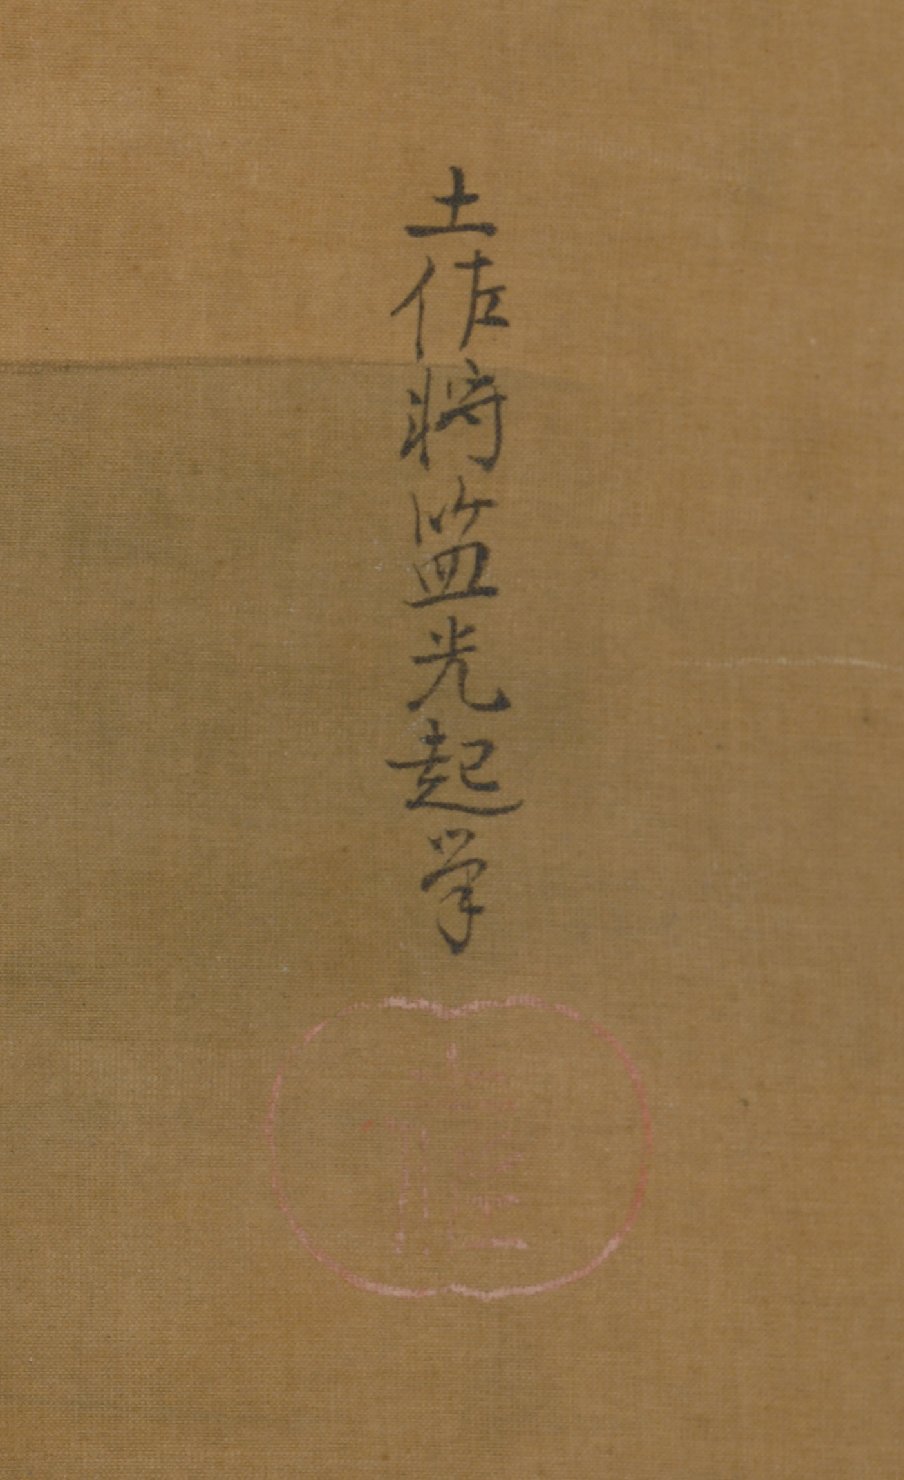 土佐将監光起筆